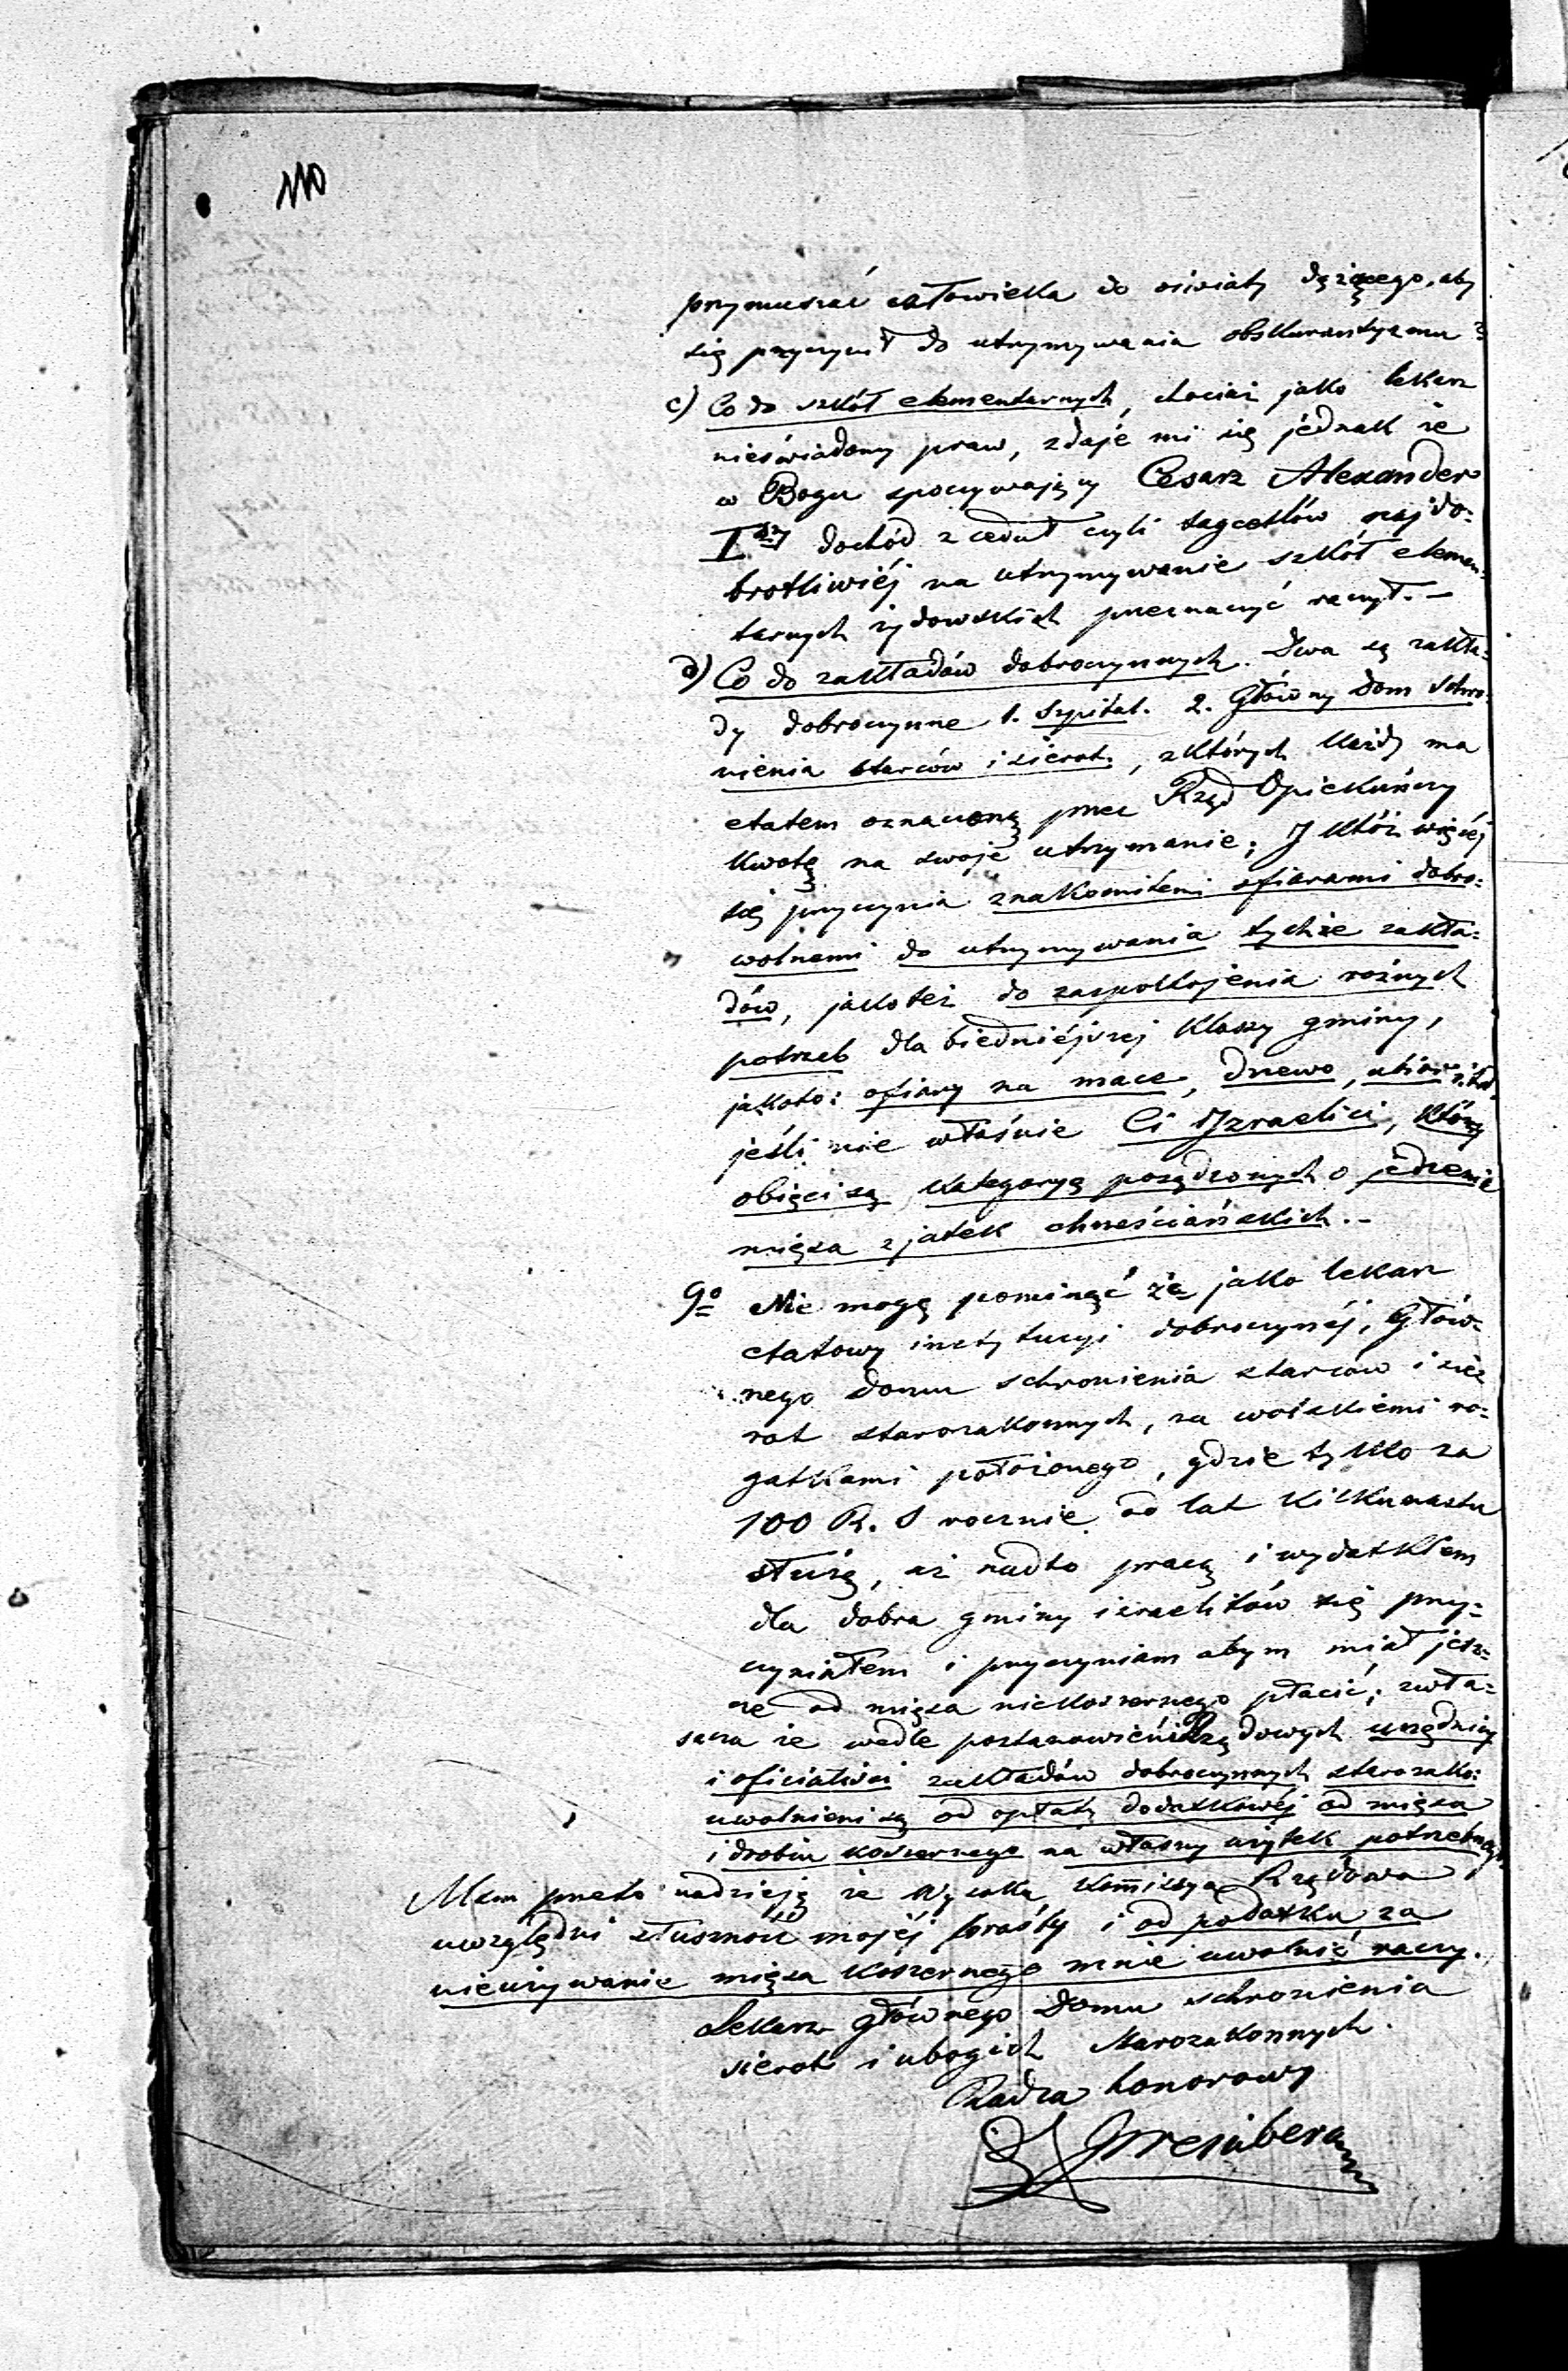 110
przymuszać człowieka do oświaty dążącego, aby
się przyczynił do utrzymywania obskurantyzmu?
c) Co do szkół elementarnych, chociaż jako lekarz
nieświadomy praw, zdaje mi się jednak że
w Bogu spoczywający Cesarz Alexander
Iszy dochód z ceduł czyli tagcetlów najdo=
brotliwiéj na utrzymywanie szkół elemen=
tarnych żydowskich przeznaczyć raczył. –
d) Co do zakładów dobroczynnych. Dwa są zakła=
dy dobroczynne 1. Szpital. 2. Główny Dom schro=
nienia starców i sierot., z których każdy ma
etatem oznaczoną przez Rząd Opiekuńczy
kwotę na swoje utrzymanie; J któż więcéj
się przyczynia znakomitemi ofiarami dobro=
wolnemi do utrzymywania tychże zakła=
dów, jakoteż do zaspokojenia rożnych
potrzeb dla biedniéjszej klassy gminy,
jakoto: ofiary na mace, drzewo, ubior i t.d.
jeśli nie właśnie Ci Izraelici, którzy
obięci są kategoryą posądzonych o jedzenie
mięsa z jatek chrześciańskich. –
9o Nie mogę pominąć że jako lekarz
etatowy instytucyi dobroczynéj, Głów=
nego Domu schronienia starców i sie=
rot starozakonnych, za wolskiemi ro=
gatkami położonego, gdzie tylko za
100 R. S rocznie od lat kilkunastu
służę, aż nadto pracą i wydatkiem
dla dobra gminy izraelitów się przy=
czyniałem i przyczyniam abym miał jesz=
cze od mięsa niekoszernego płacić; zwła=
szcza że wedle postanowień Rządowych urzędnicy
i oficialiści zakładów dobroczynnych starozako:
uwolnieni są od opłaty dodatkowéj od mięsa
i drobiu koszernego na własny użytek potrzebnego.
Mam przeto nadzieję że Wysoka Kommissya Rządowa
uwzględni słuszność mojéj prośby i od podatku za
nieużywanie mięsa koszernego mnie uwolnić raczy.
Lekarz głównego Domu schronienia
sierot i ubogich Starozakonnych.
Radca honorowy